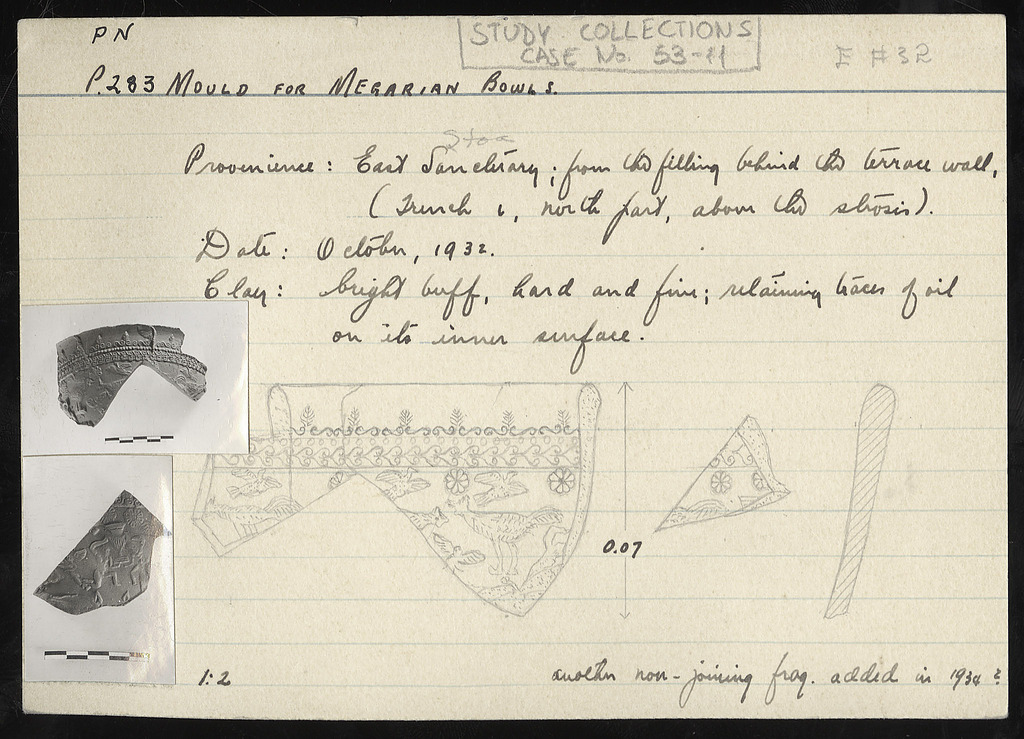 PN
STUDY COLLECTIONS
CASE No. 53-11
E #32
P.283 MOULD FOR MEGARIAN BOWLS.
Stoa
Provenience: East Sanctuary; from the filling behind the terrace wall,
(Trench ι, north part, above the strosis).
Date: October, 1932.
Clay: bright buff, hard and fine; retaining traces of oil
on its inner surface.
0.07
1:2
another non-joining frag. added in 1934 ?